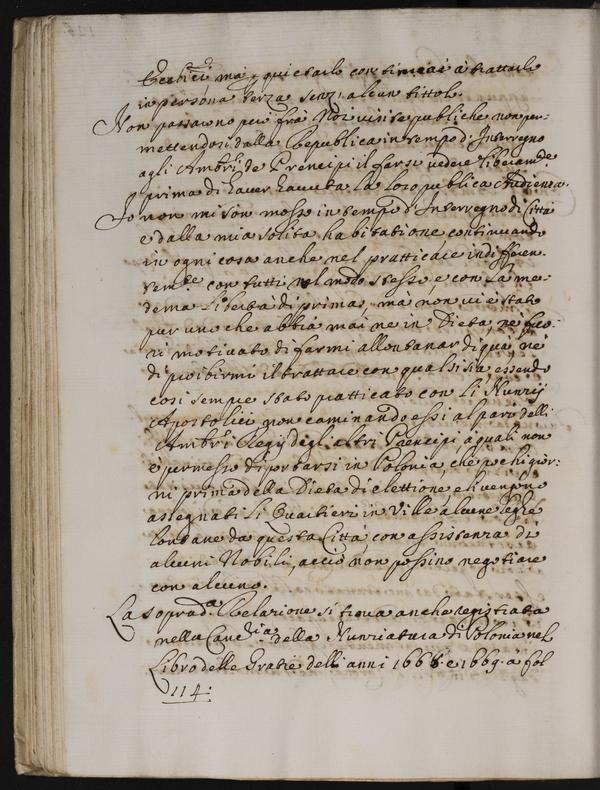 mà p quietarlo continuai à trattarlo
in persona terza senz'alcun titolo.
Non passarno però frà Noi visite publiche non per:
mettendosi dalla Republica in tempo d'Interregno
agli Ambri de Prencipi il farsi vedere liberamte
prima di haver havuta la loro publica Audienza.
Io non mi son mosso in tempo d'Interregno di Città
e dalla mia solita habitatione continuando
in ogni cosa anche nel pratticare indifferen:
temte con tutti nel modo stesso, e con la me:
dema libertà di prima, mà non vi è stato
pur uno che abbia mai ne in Dieta, nè fuo:
ri motivato di farmi allontanar di quà, nè
di proibirmi il trattare con qualsisia, essendo
così sempre stato pratticato con li Nunzij
Apostolici non caminando essi al pari delli
Ambri Regij degli altri Prencipi, a quali non
è permesso di portarsi in Polonia, che pochi gior:
ni prima della Dieta di elettione e li vengono
assegnati li Quartieri in Ville alcune leghe
lontane da questa Città con assistenza di
alcuni Nobili, acciò non possino negotiare
con alcuno.
La soprada Relazione si trova anche registrata
nella Cancria della Nunziatura di Polonia nel
Libro delle Gratie delli anni 1668. e 1669. à fol
114: